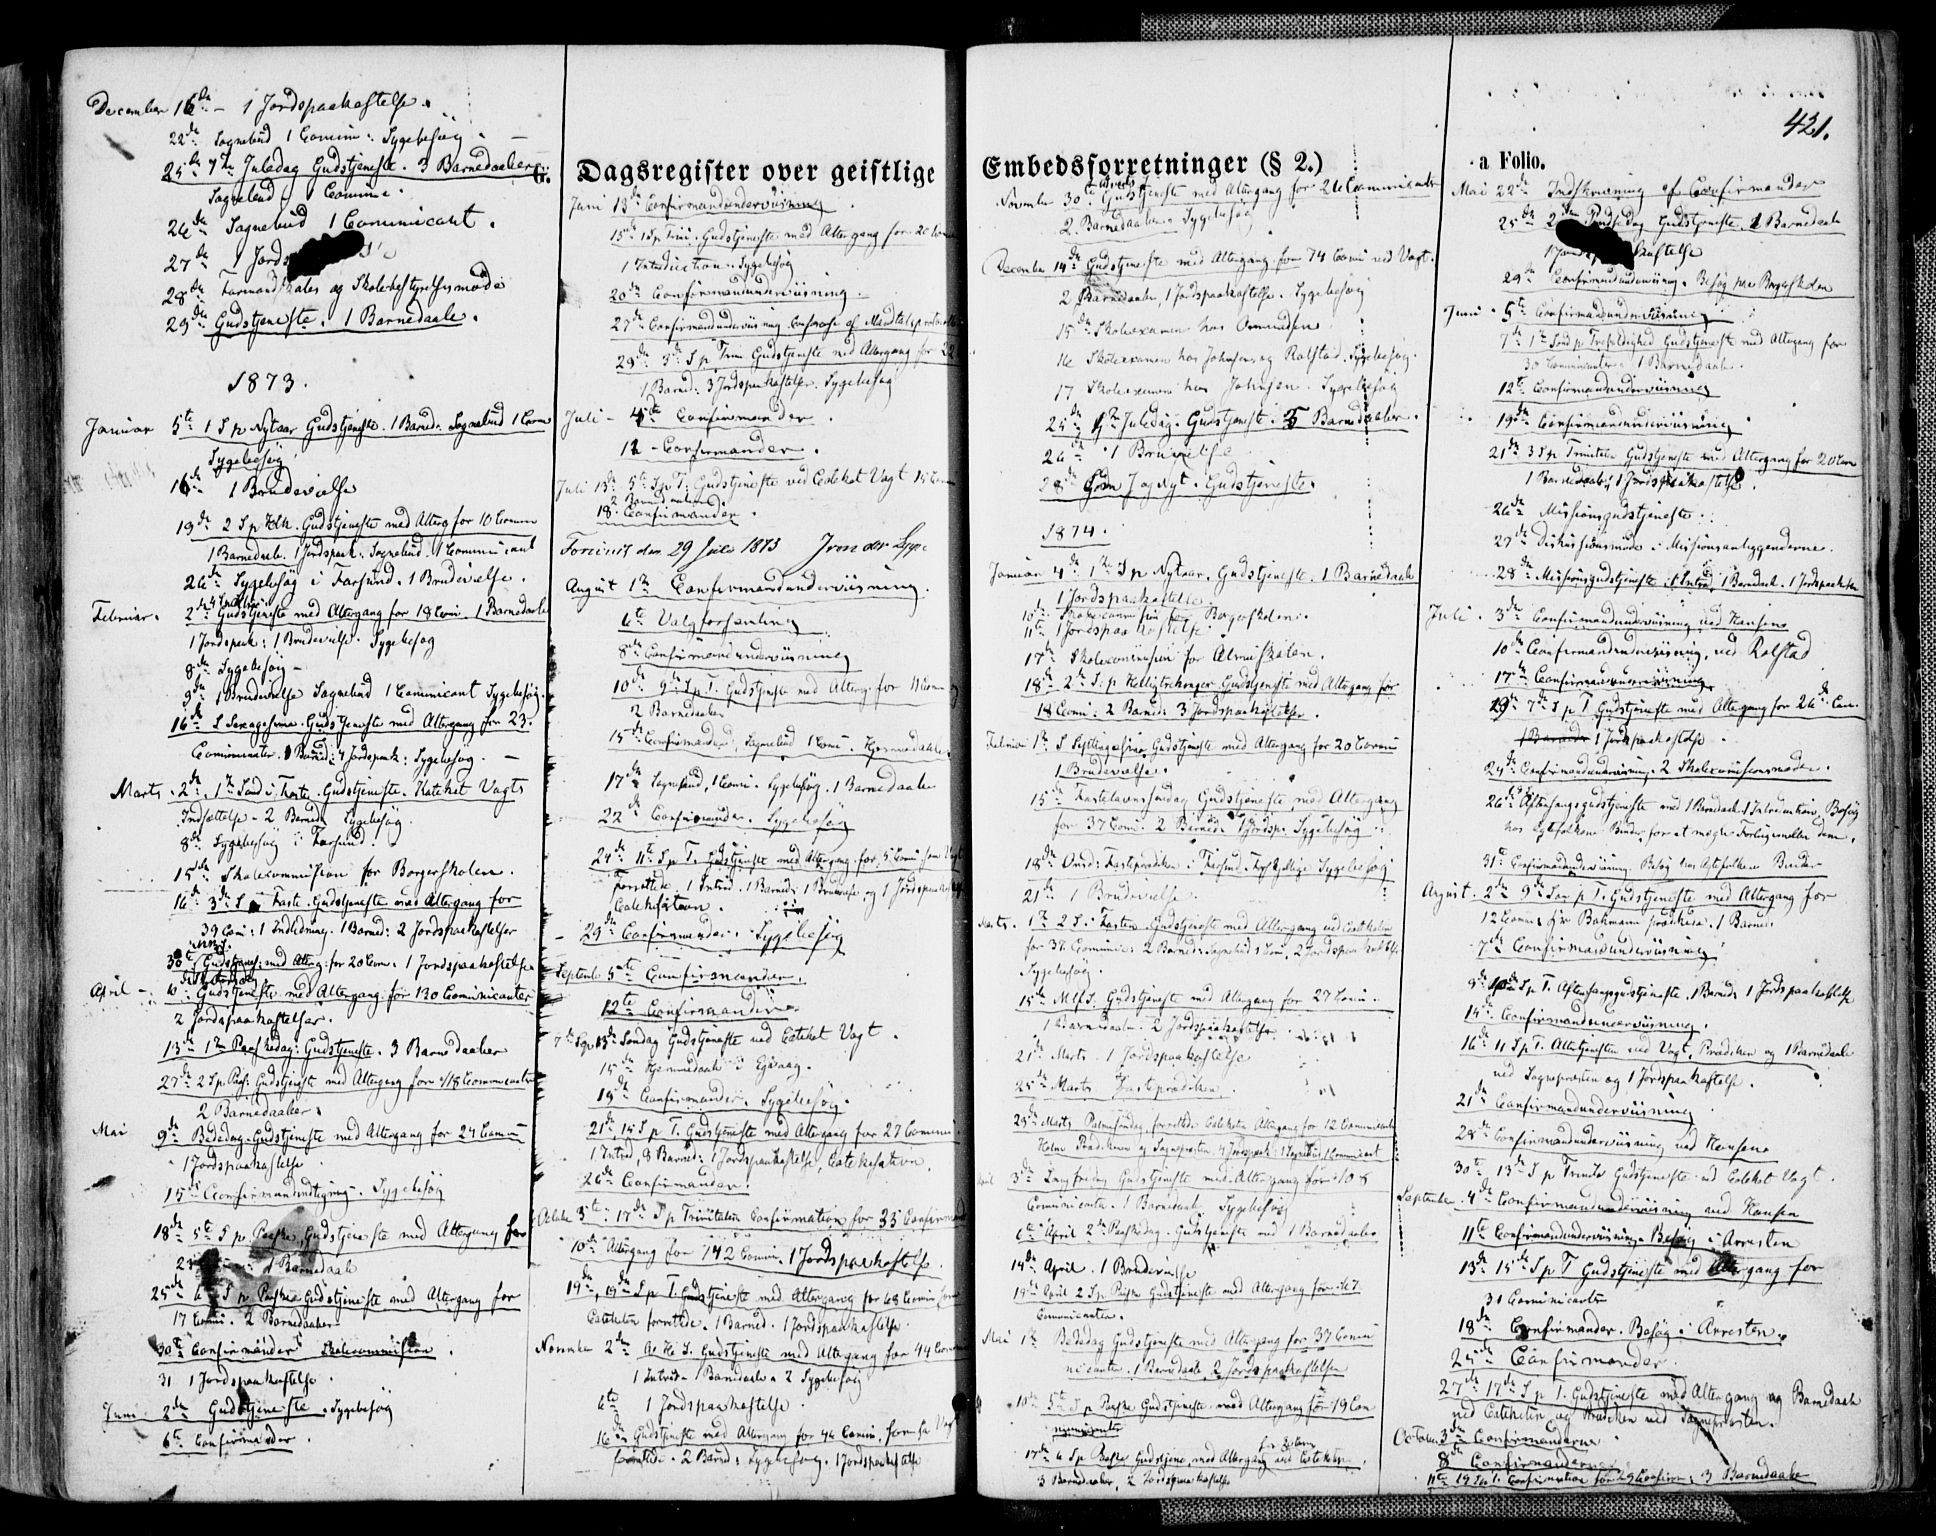 421.
G. Dagsregister over geistlige Embedsforretninger (§ 2.) a Folio.
December 16de – 1 Jordspaakastelse.
22de Sognebud 1 Comm: Sygebesøg.
25de Juledag Gudstjeneste. 3 Barnedaaber
Sognebud
26de Sognebud 1 Communicant.
27de 1 Jords
28de Formandskabs og Skolebestyrelsesmøde
29de Gudstjeneste. 1 Barnedaab.
1873.
Januar 5te 1 S p Nytaar Gudstjeneste. 1 Barned. Sognebud 1 Com
Sygebesøg
16de 1 Brudevielse
19de 2 S p Gudstjeneste med Alterg for 10 Comm
1 Barnedaab. 1 Jordspaak: Sognebud. 1 Communicant
26de Sygebesøg i Farsund. 1 Brudevielse.
Februar. 2de Gudstjeneste med Altergang for 18 Com. 1 Barnedaab
1 Jordspaak: 1 Brudevielse. Sygebesøg
8de Sygebesøg –
9de 1 Brudevielse Sognebud 1 Communicant Sygebesøg.
16de S Sexagesima Gudstjeneste med Altergang for 23.
Communicanter. 1 Barned: Jordspaak: Sygebesøg. –
Marts. 2de 1te Sønd i Faste. Gudstjeneste. Katechet Vagts
Indsættelse – 2 Barned: Sygebesøg.
8de Sygebesøg i Farsund.
15de Skolekommission for Borgerskolen.
16de 3de S i Faste. Gudstjeneste med Altergang for
39 Com: 1 Indledning. 1 Barned: 2 Jordspaakastelser
30te Gudstjenest: med Alterg: for 20 Com. 1 Jordspaakastelse
April – 10de Gudstjeneste med Altergang for 130 Communicanter
2 Jordspaakastelser.
13de 1te Paaskedag: Gudstjeneste. 3 Barnedaaber
27de 2 S p. Paas: Gudstjeneste med Altergang for 118 Communicanter
2 Barnedaaber.
Mai 9de Bededag. Gudstjeneste med Altergang for 24 Comm
1 Jordspaakastelse
15de Sygebesøg
18de 5te S p. Paaske. Gudstjeneste med Altergang for
1 Barnedaab
25de 6te S p. Paaske Gudstjeneste med Altergang for
17 Comm: 2 Barnedaaber
30te Confirmander Skolekommission.
31 1 Jordspaakastelse.
Juni. 2de Gudstjeneste. Sygebesøg
6te Confirmander.
Juni 13de Confirmandundervisning.
15de 1 S p Trin. Gudstjeneste med Altergang for 20 Com
1 Introduction. Sygebesøg
20de Confirmandundervisning.
27de Confirmandundervisning
29de 3de S p Trin Gudstjeneste med Altergang for 22
1 Barned: 3 Jordspaakastelser. Sygebesøg
Juli – 4de Confirmander.
12 – Confirmander.
Juli 13de 5te S p T. Gudstjeneste ved Catekat Vagt 15 Com
2 Barned
18. Confirmander.
29 Juli 1873
August 1te Confirmandundervisning.
6te Valgforsamling
8de Confirmandundervisning
10de 9de S p T. Gudstjeneste med Alterg: for 11 Com
2 Barnedaaber
15de Confirmander, Sognebud 1 Com. Hjemmedaab
17de Sognebud, 1 Com. Sygebesøg. 1 Barnedaab
22de Confirmander. Sygebesøg
24de 11te S p T. Gudstjeneste med Altergang for 5 Com som Vagt
forrettede. 1 Introd. 1 Barned: 1 Brudevielse og 1 Jordspaakast
Catekisation.
29de Confirmander. Sygebesøg
September 5te Confirmander.
12te Confirmander
Søndag Gudstjeneste ved Catekat Vagt.
15de Hjemmedaab i Egvaag.
19de Confirmander. Sygebesøg.
21de 15 S p T. Gudstjeneste med Altergang for 27 Comm
1 Introd, 8 Barned: 1 Jordspaakastelse, Catekisation.
26de Confirmander.
October 5te. 17de S p Trinitatis Confirmation for 35 Confirmand
10de Altergang for 142 Comm. 1 Jordspaakastelse.
19de, 19de S p T. Gudstjeneste med Altergang for 68 Comm som
Catekten forrettede. 1 Barned. 1 Jordspaakastelse.
November 2de A. H. S. Gudstjeneste med Altergang for 44 Comm
1 Introd – 1 Barnedaab. 2 Sygebesøg
6te 1 Jordspaakastelse.
16de Gudstjeneste med Altergang for 46 Comm. Vagt
forrettede. 2 Barned: Sygebesøg. 1 Jordspaakastelse
November 30te Gudstjeneste med Altergang for 26 Communicanter
2 Barnedaaber Sygebesøg
December 14de Gudstjeneste med Altergang for 74 Com ved Vagt.
2 Barnedaab, 1 Jordspaakastelse. Sygebesøg
15de Skolexamen hos Osmundsen
16 Skolexamen hos Johnsen og Rolstad. Sygebesøg.
17 Skolexamen hos Johnsen. Sygebesøg
25de 1te Juledag. Gudstjeneste. 5 Barnedaaber.
26de 1 Brudevielse
28de Søn J og Nyt. Gudstjeneste.
1874.
Januar 4de 1te S p Nytaar. Gudstjeneste. 1 Barnedaab
1 Jordspaakastelse
10de Skolecommission for Borgerskolen.
11te 1 Jordspaakastelse
17de Skolecommission for Almueskolen.
18de 2de S. p Helligtrekonger Gudstjeneste med Altergang for
18 Comm: 2 Barned: 3 Jordspaakastelser.
Februar 1te S Septuagesima Gudstjeneste med Altergang for 20 Comm
1 Brudevielse.
15de Fastelavnssøndag Gudstjeneste med Altergang
for 37 Com: 2 Barned: 1 Jordsp. Sygebesøg
18de Onsd: Fasteprædiken i Farsund. Sygebesøg
21de 1 Brudevielse
Marts. 1te 2 S i Fasten Gudstjeneste med Altergang ved Catekten
for 37 Comm: 2 Barned: Sognebud 1 Com, 2 Jordspaakastelse
Sygebesøg.
15de Mf S. Gudstjeneste med Altergang for 27 Comm.
1 Barnedaab. 2 Jordspaakastelse
21de Marts. 1 Jordspaakastelse
25de Marts Fasteprædiken
29de Marts Palmesøndag forrettede Catekten Altergang for 12 Communicanter
April 3de Langfredag Gudstjeneste med Altergang for 108
Communicanter. 1 Barnedaab, Sygebesøg
6te April 2de Paaskedag. Gudstjeneste med 1 Barnedaaber
14de April. 1 Brudevielse
19de April 2 S p Paaske Gudstjeneste med Altergang for 167.
Communicanter.
Mai 1te Bededag Gudstjeneste med Altergang for 37 Commu
nicanter. 1 Barnedaab, 2 Jordspaakastelse
10de 5te S p Paaske Gudstjeneste med Altergang for 19 Com
municanter
17de 6 S p Paaske Gudstjene. med Altergang for ved Catekten.
3 Barnedaaber, 2 Jordspaakastelse
Mai 22de Indskrivning af Confirmander
25de 2den Pindsedag Gudstjeneste 1 Barnedaab
29de Confirmandundervisning. Besøg paa Borgerskolen
Juni. 5te Confirmandundervisning
7de 1te Sønd p Trefoldighed Gudstjeneste med Altergang for
30 Communicanter 1 Barnedaab.
12te Confirmandundervisning
19de Confirmandundervisning.
21de 3 S p Trinitatis Gudstjeneste med Altergang for 20 Com
1 Barnedaab. 1 Jordspaakastelse.
26de Missionsgudstjeneste.
27de Diskussionsmøde i Missionsanliggenderne.
28de Missionsgudstjeneste. 1 Introd, 1 Barnedaab. 1 Jordspaakastelse
Juli. 3de Confirmandundervisning ved Hansen
10de Confirmandundervisning, ved Rolstad
17de Confirmandundervisning
19de 7de S p T Gudstjeneste med Altergang for 26 Com.
1 Jordspaakastelse.
24de Confirmandundervisning. 2 Skolecommissionsmøder.
26de Aftensangsgudstjeneste med 1 Barnedaab. 1 Introduction, Besøg
hos for at mægle Forligsmægler dem.
31te Confirmandundervisning Besøg hos
August. 2de 9de Søn p T. Gudstjeneste med Altergang for
12 Comm: prædikede. 1 Barned
7de Confirmandundervisning
9de 10de S p T. Aftensangsgudstjeneste. 1 Barned: 1 Jordspaakastelse
14de Confirmandundervisning.
16de 11 S p T. Altertjenesten ved Vagt, Prædiken og 1 Barnedaab
ved Sognepræsten og 1 Jordspaakastelse.
21de Confirmandundervisning
28de Confirmandundervisning ved Hansen
30te 13de S p Trinitat Gudstjeneste ved Catekat Vagt.
September. 4de Confirmandundervisning ved Hansen
11te Confirmandundervisning. Besøg i Arresten
13de 15de S p T Gudstjeneste med Altergang for
31 Communicanter
18de Confirmander. Besøg i Arresten.
25de Confirmander.
27de 17de S p T. Gudstjeneste med Altergang og Barnedaab
ved Catekten og Prædiken ved Sognepræsten.
October. 3de Confirmanderne
8de Confirmanderne
11te 19 S p T. Confirmation for 29 Confirm: 3 Barnedaabe